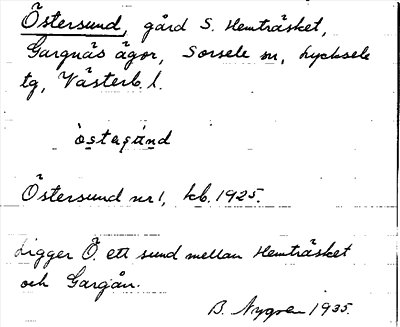 Östersund, gård S. Hemträsket,
Gargnäs ägor, Sorsele sn, Lycksele
tg, Västerb. l.
östersund nr 1, kb. 1925.
Ligger Ö. ett sund mellan Hemträsket
och Gargån.
B. Nygren 1935.